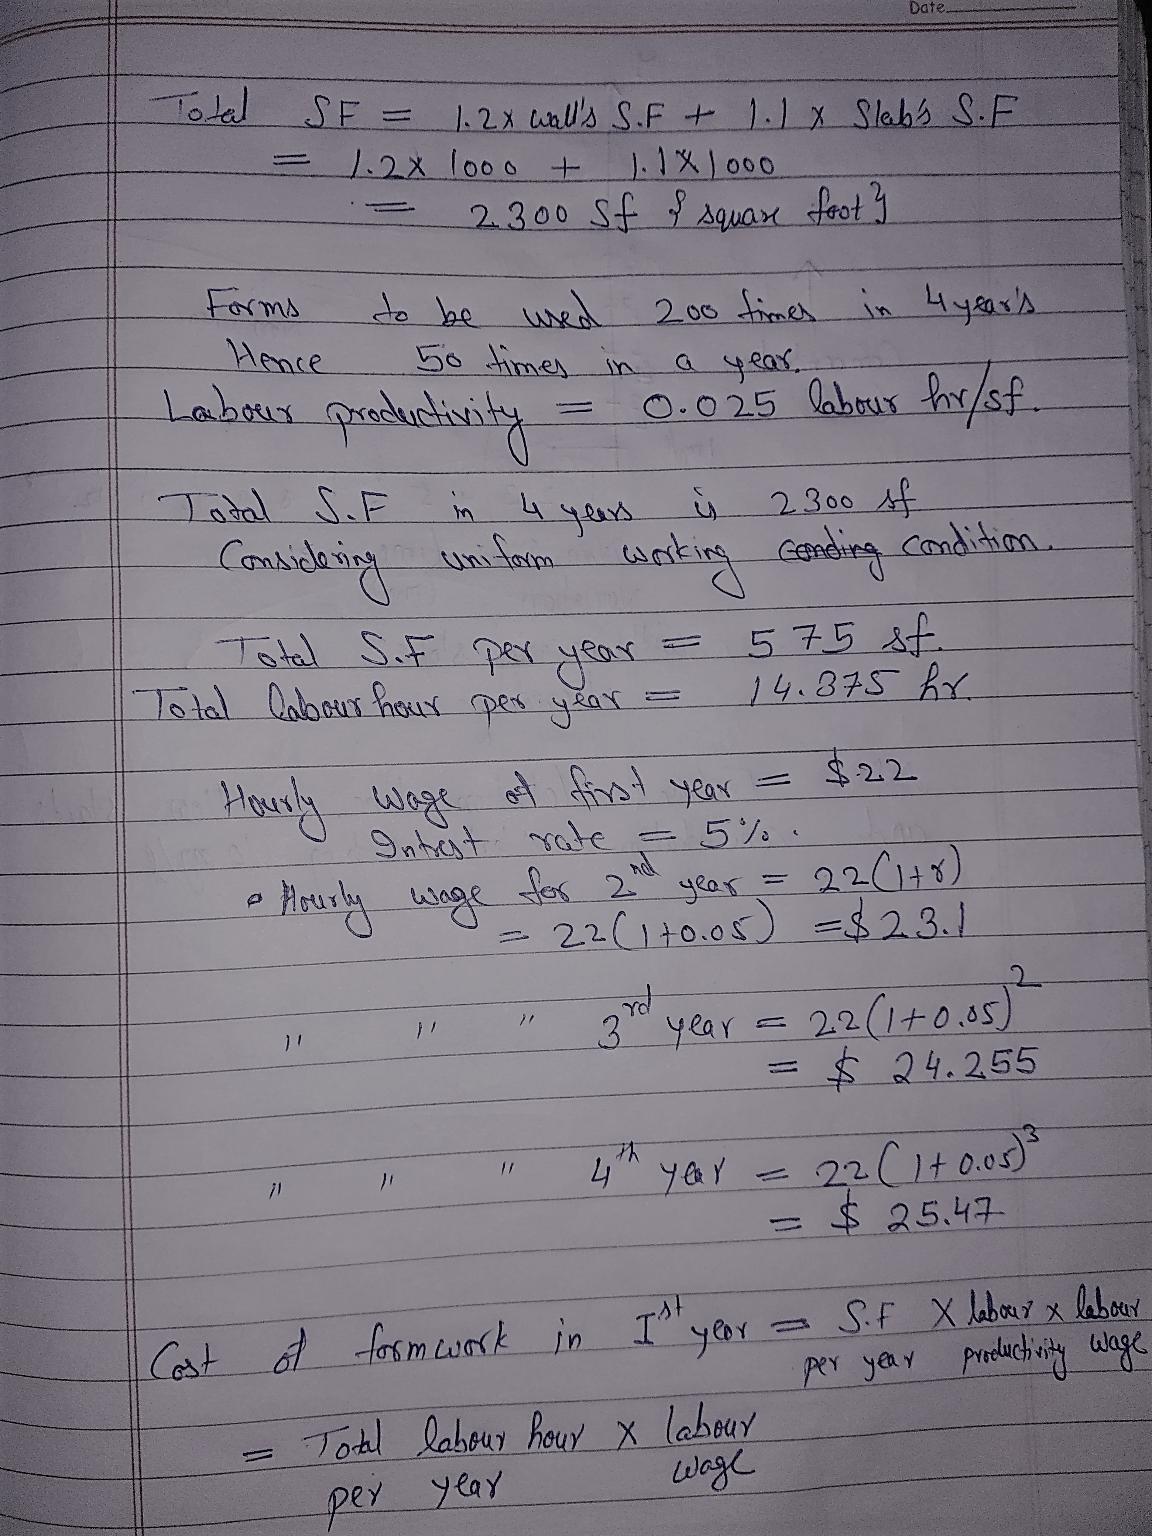 Date
Total SF = 1.2x wall's S.F + 1.1 x Slab's S.F
= 1.2x 1000 + 1.1x1000
= 2300 Sf { square foot }
Forms to be used 200 times in 4 year's
Hence 50 times in a year.
Labour productivity = 0.025 labour hr/sf.
Total S.F in 4 years is 2300 sf
Considering uniform working condition.
Total S.F per year = 575 sf.
Total labour hour per year = 14.375 hr.
Hourly wage of first year = $22
Intrest rate = 5%.
Hourly wage for 2nd year = 22(1+r)
= 22(1+0.05) = $23.1
" " " 3rd year = 22(1+0.05)^2
= $ 24.255
" " " 4th year = 22(1+0.05)^3
= $ 25.47
Cost of formwork in Ist year = S.F X labour x labour
per year productivity wage
= Total labour hour x labour
per year wage